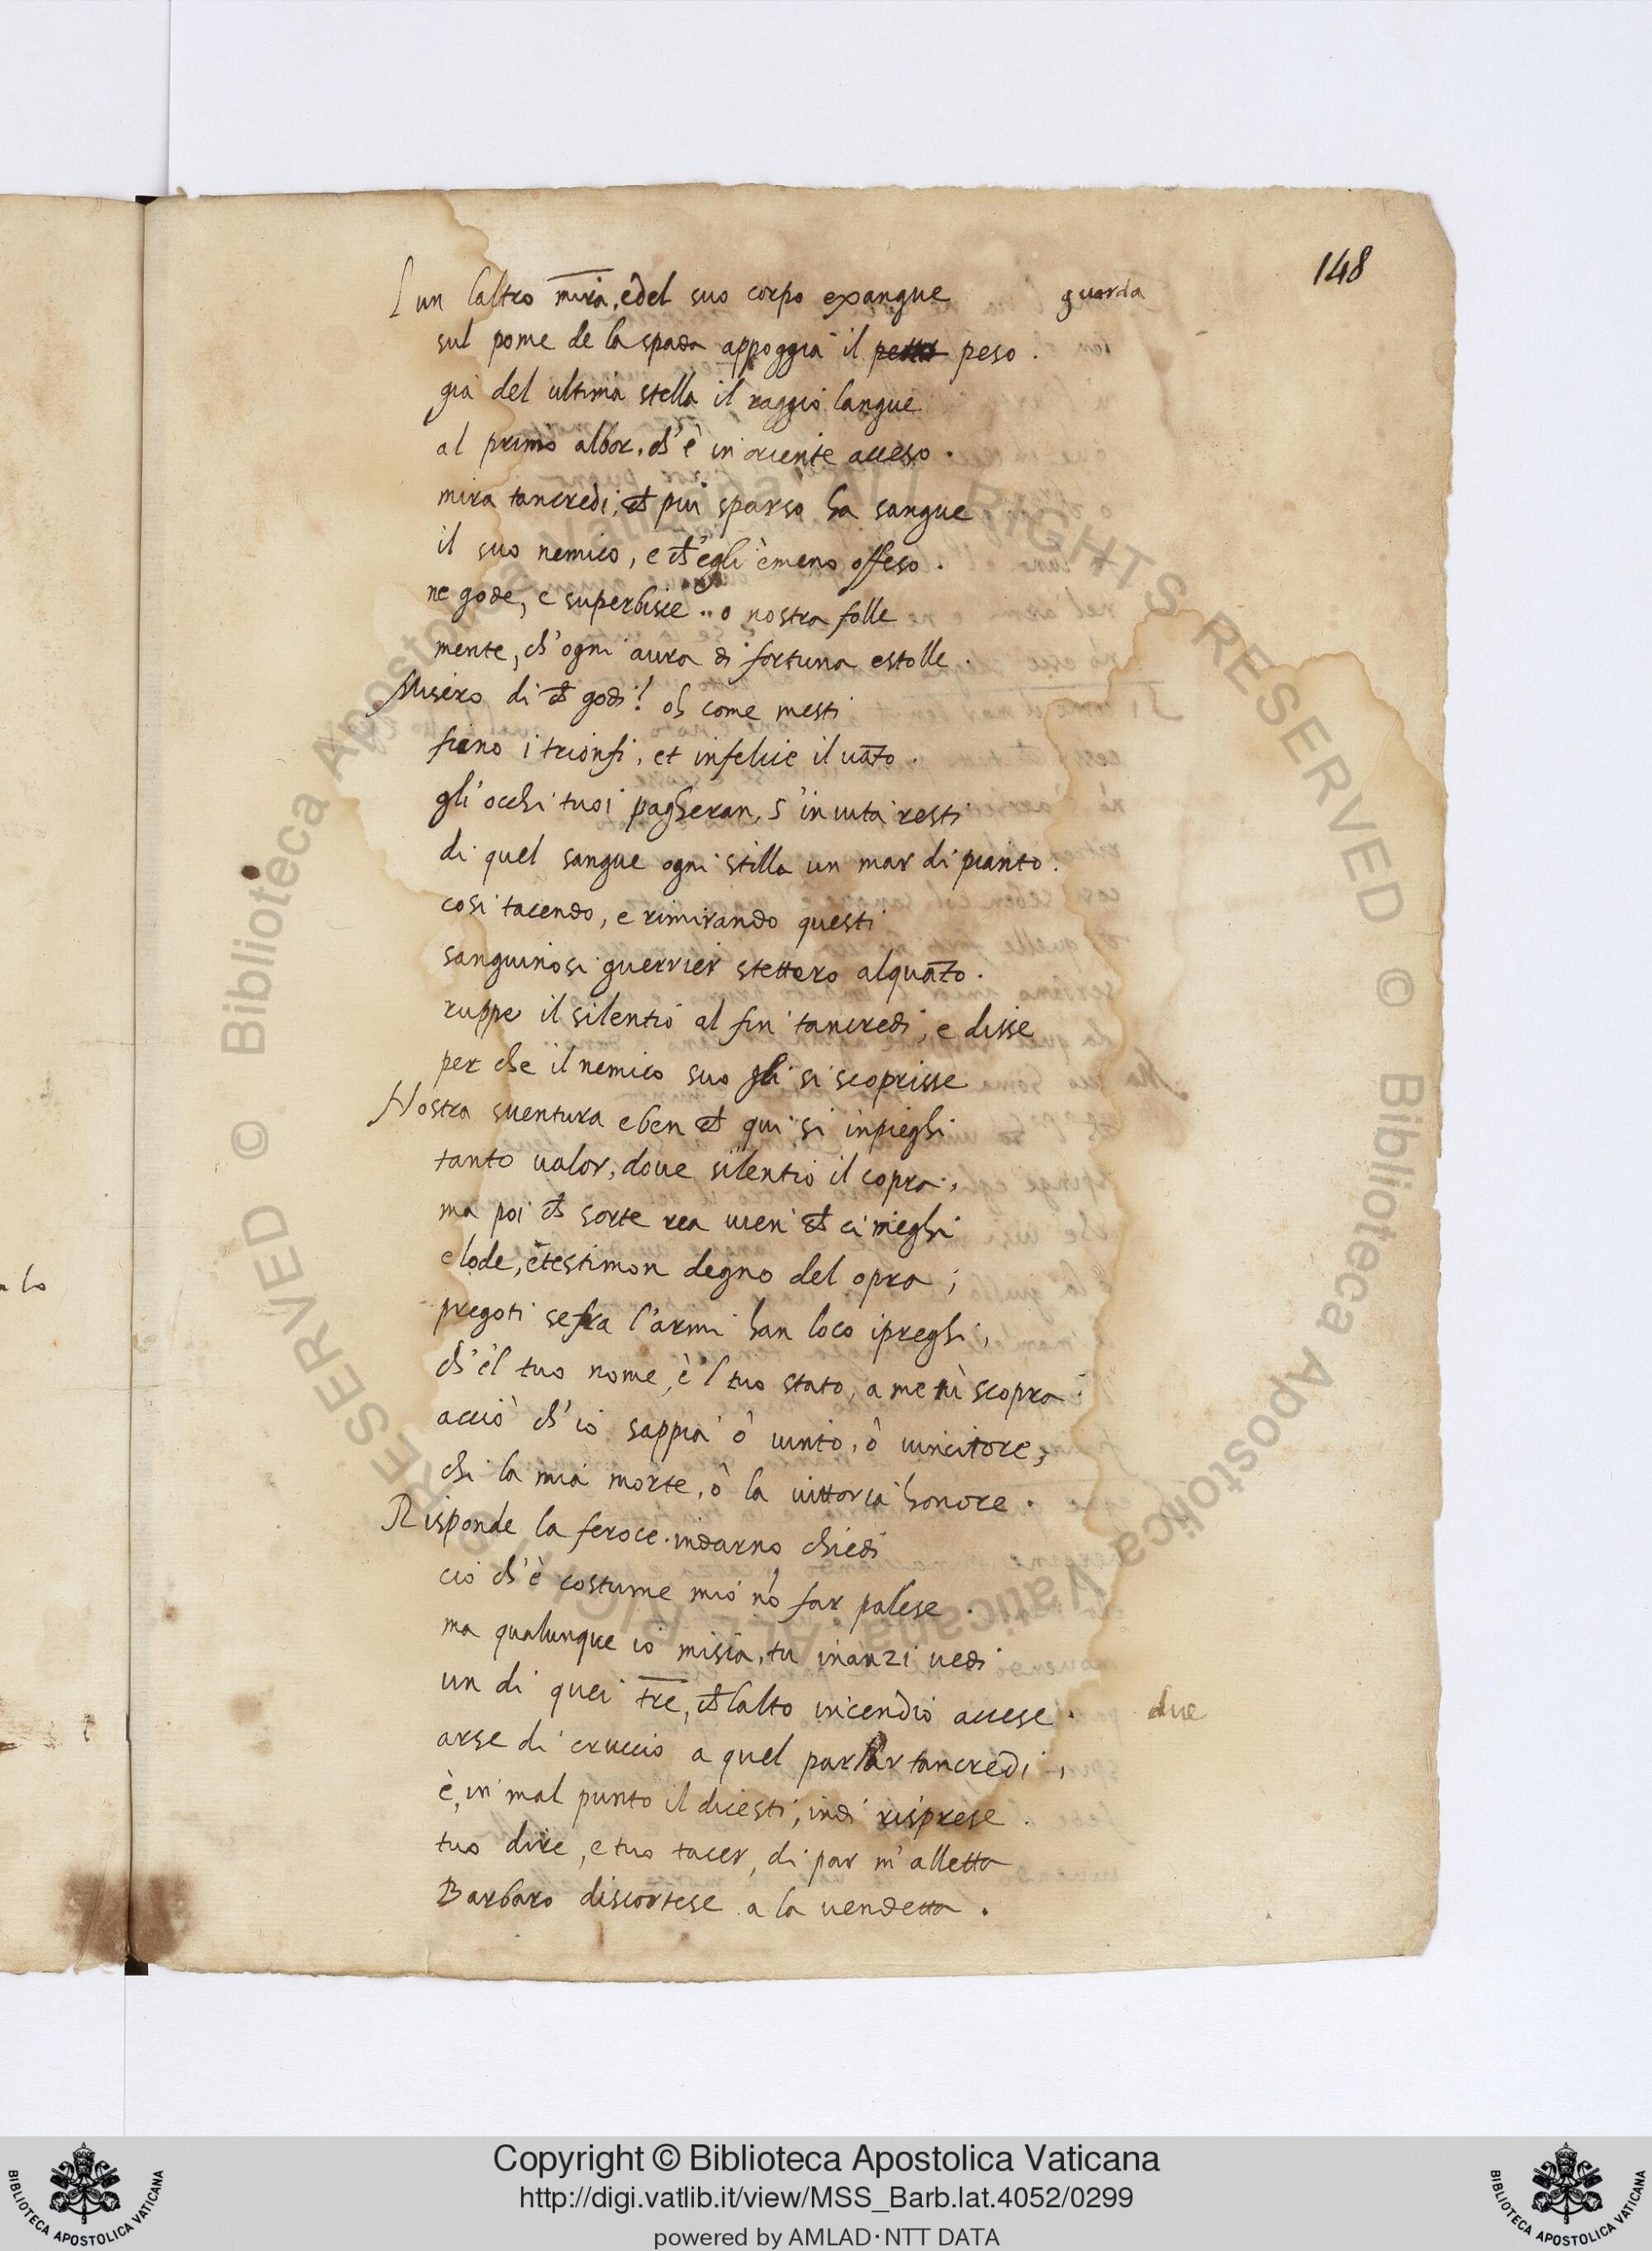 148
L un laltro mira, e del suo corpo exangue guarda
sul pome de la spada appoggia il petto peso .
gia del ultima stella il raggio langue
al primo albor, ch' è in oriente acceso .
mira tancredi, ch̃ piu sparso ha sangue
il suo nemico, e ch̃'egli è meno offeso .
ne gode, e superbisce .. o nostra folle
mente, ch' ogni aura di fortuna estolle .
Misero di ch̃ godi? oh come mesti
fieno i trionfi, et infelice il uāto .
gli occhi tuoi pagheran, s' in uita resti
di quel sangue ogni stilla un mar di pianto .
cosi tacendo, e rimirando questi
sanguinosi guerrier stettero alquāto .
ruppe il silentio al fin tancredi, e disse
per che il nemico suo gli si scoprisse
Nostra suentura e ben ch̃ qui si inpieghi
tanto ualor, doue silentio il copra,
ma poi ch̃ sorte rea uien ch̃ ci nieghi
e lode, e testimon degno del opra ;
pregoti se fra l'armi han loco i preghi,
ch' el tuo nome, e 'l tuo stato, a me scopra
acciò ch' io sappia ò uinto, ò uincitore,
chi la mia morte, ò la uittoria honore .
Risponde la feroce . indarno chiedi
cio ch' è costume mio nō far palese .
ma qualunque io mi sia, tu inanzi uedi
un di quei tre, ch̃ l alto incendio accese . due
arse di cruccio a quel parlar tancredi,
è, in mal punto il dicesti, indi risprese .
tuo dire, e tuo tacer, di par m' alletta
Barbaro discortese a la uendetta .
Copyright © Biblioteca Apostolica Vaticana
http://digi.vatlib.it/view/MSS_Barb.lat.4052/0299
powered by AMLAD · NTT DATA
BIBLIOTECA APOSTOLICA VATICANA
BIBLIOTECA APOSTOLICA VATICANA